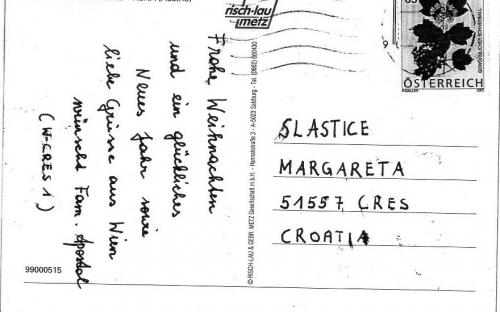 risch-lau
metz
ÖSTERREICH
Frohe Weihnachten
und ein glückliches
Neues Jahr sowie
liebe Grüsse aus Wien
wünscht Fam. Apostal
(W-CRES 1)
© RISCH-LAU & GEBR. METZ Gesellschaft m.b.H. - Hannakstraße 3 - A-5023 Salzburg - Tel.
SLASTICE
MARGARETA
51557 CRES
CROATIA
99000515